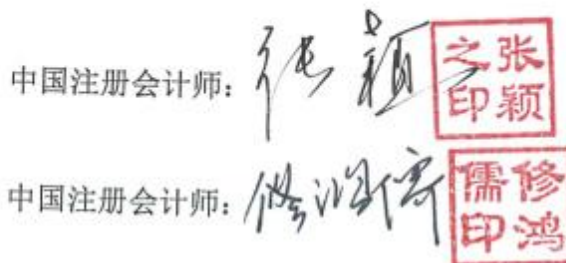 中国注册会计师：张颖 张颖之印
中国注册会计师：修鸿儒 修鸿儒印